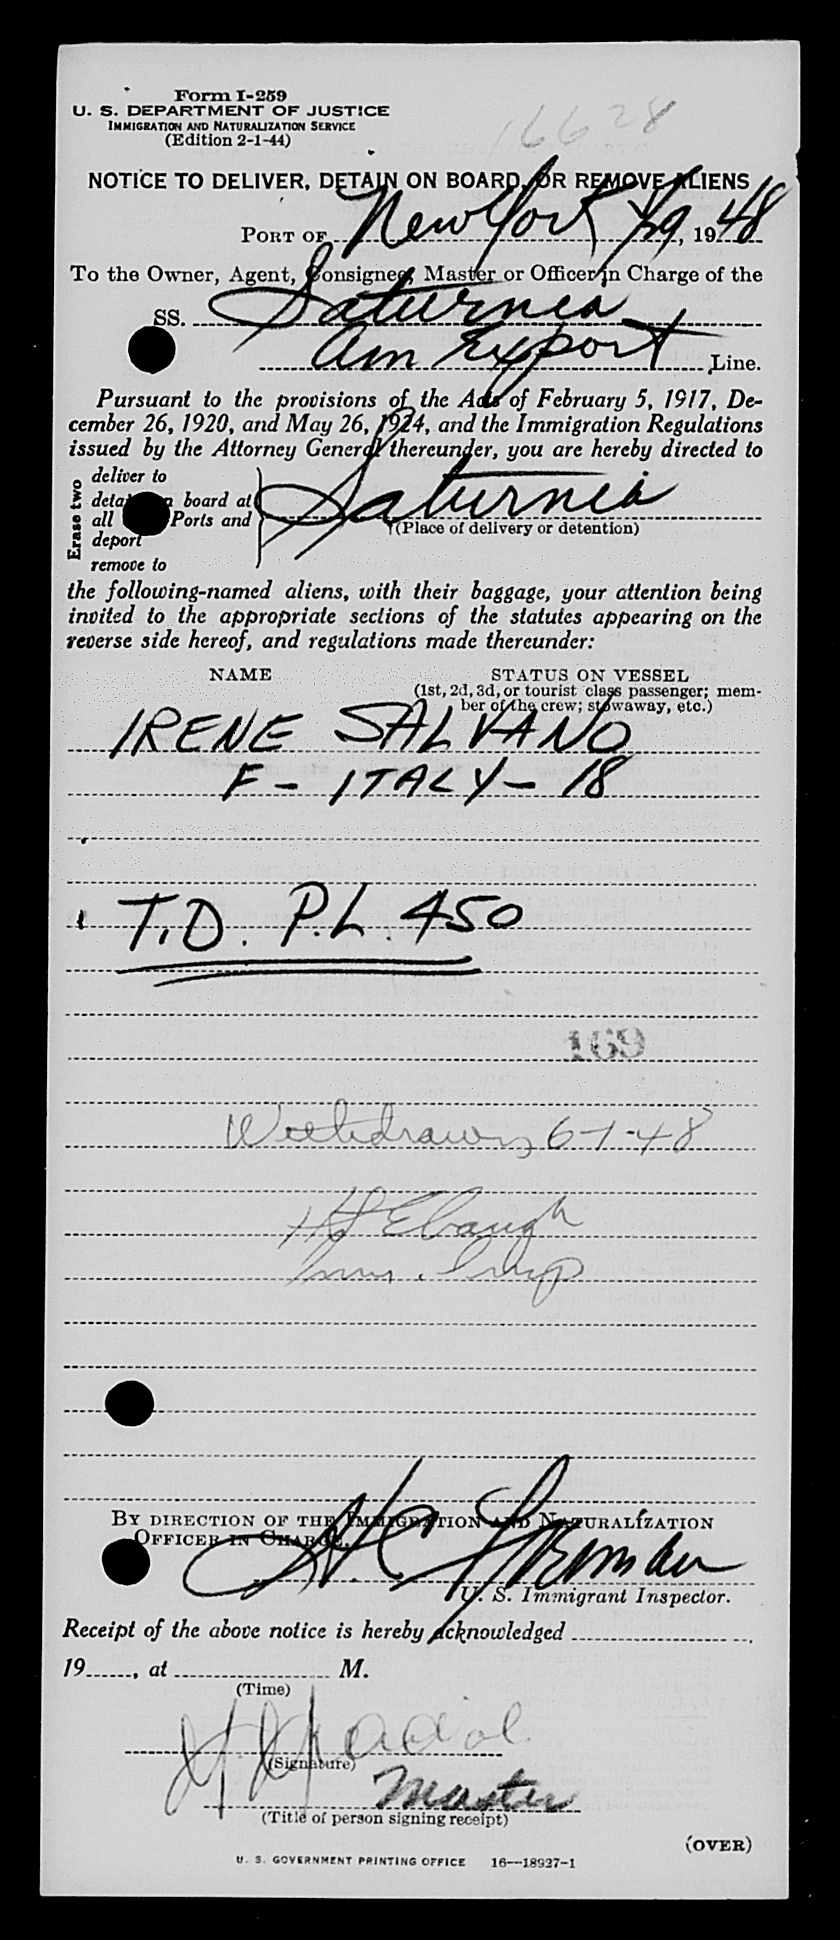 16628
Form I-259
U. S. DEPARTMENT OF JUSTICE
IMMIGRATION AND NATURALIZATION SERVICE
(Edition 2-1-44)
NOTICE TO DELIVER, DETAIN ON BOARD, OR REMOVE ALIENS
PORT OF New York /29, 1948
To the Owner, Agent, Consignee, Master or Officer in Charge of the
SS. Saturnia
Am Export Line.
Pursuant to the provisions of the Acts of February 5, 1917, De-
cember 26, 1920, and May 26, 1924, and the Immigration Regulations
issued by the Attorney General thereunder, you are hereby directed to
Erase two
deliver to
detain on board at
all Ports and
deport
remove to
Saturnia
(Place of delivery or detention)
the following-named aliens, with their baggage, your attention being
invited to the appropriate sections of the statutes appearing on the
reverse side hereof, and regulations made thereunder:
NAME STATUS ON VESSEL
(1st, 2d, 3d, or tourist class passenger; mem-
ber of the crew; stowaway, etc.)
IRENE SALVANO
F - ITALY - 18
T.D. P.L. 450
169
Withdrawn 6-1-48
H Ebaugh
Imm. Insp
BY DIRECTION OF THE IMMIGRATION AND NATURALIZATION
OFFICER IN CHARGE.
U. S. Immigrant Inspector.
Receipt of the above notice is hereby acknowledged
19 , at M.
(Time)
(Signature)
Master
(Title of person signing receipt)
(OVER)
U. S. GOVERNMENT PRINTING OFFICE 16—18927-1